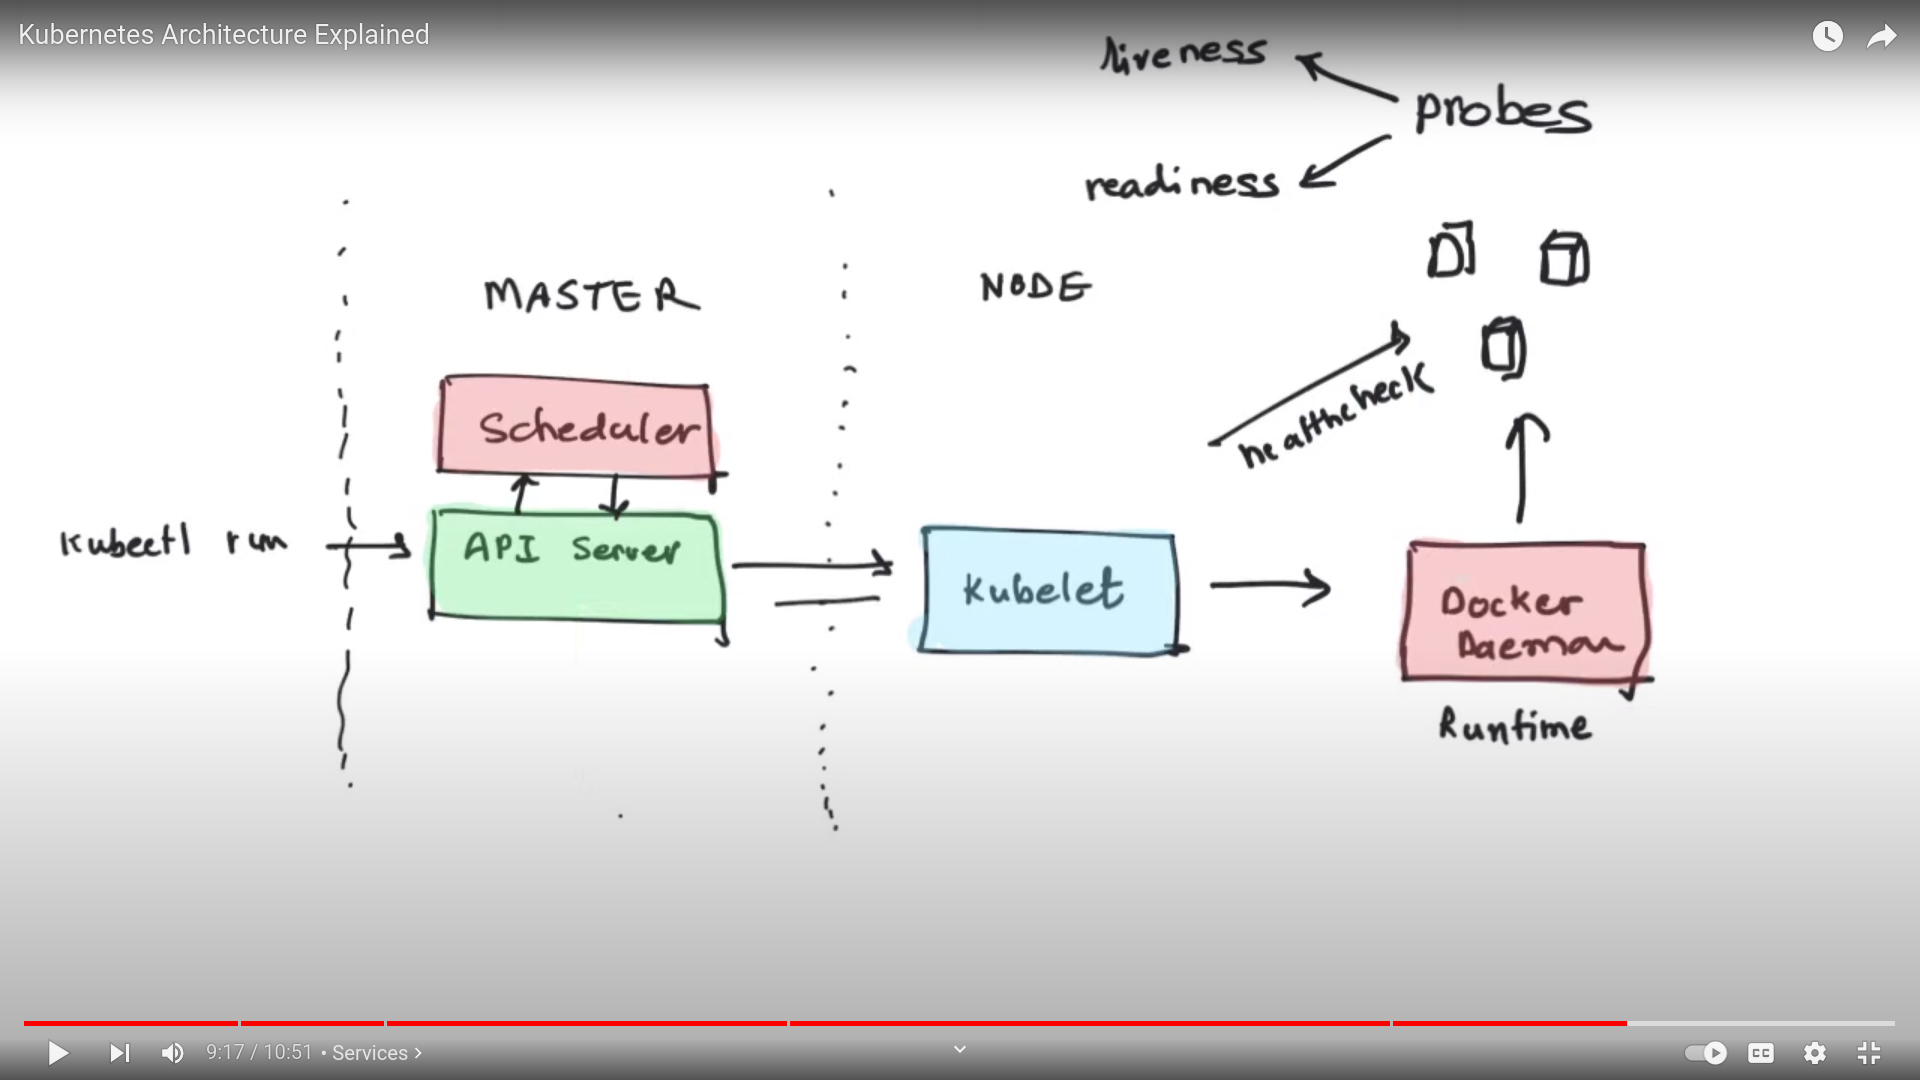 Kubernetes Architecture Explained
liveness
probes
readiness
MASTER
NODE
Scheduler
healthcheck
Kubectl run
API Server
Kubelet
Docker
Daemon
Runtime
9:17 / 10:51 • Services >
CC